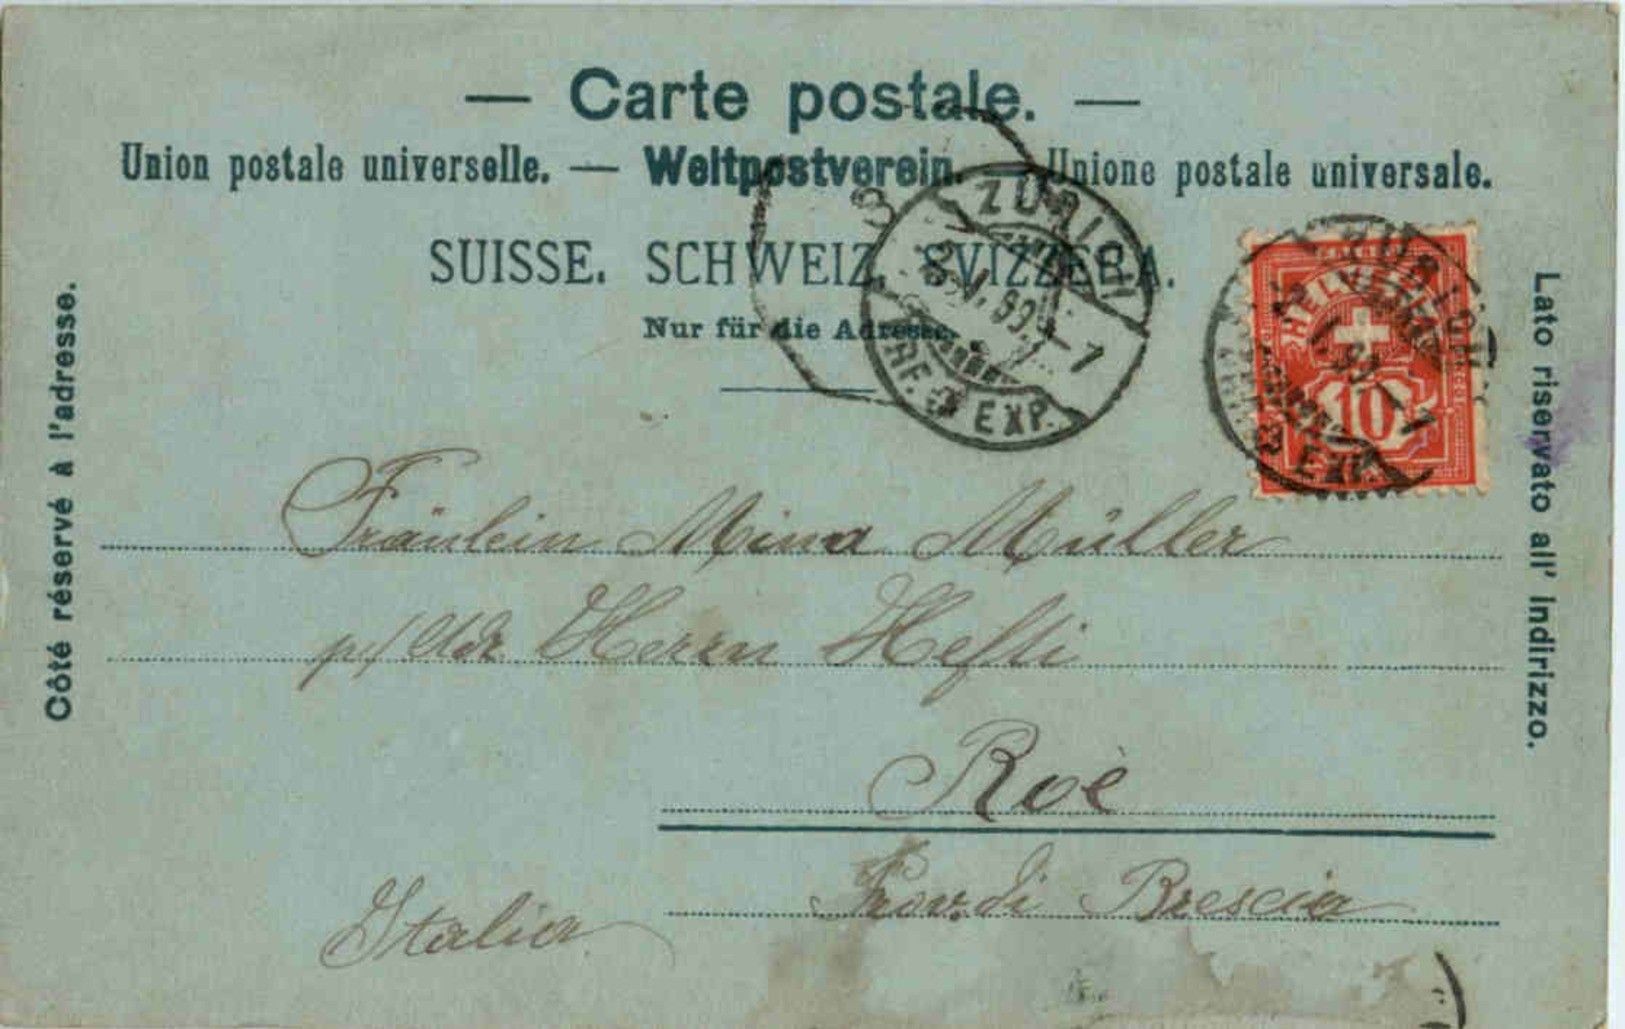 — Carte postale. —
Union postale universelle. — Weltpostverein. — Unione postale universale.
SUISSE. SCHWEIZ. SVIZZERA.
Nur für die Adresse.
3
ZÜRICH
BRF. EXP.
HELVETIA
10
EXP.
Côté réservé à l'adresse.
Lato riservato all' Indirizzo.
Fräulein Mina Müller
p/ Adr. Herrn Hefti
Roè
Prov. di Brescia
Italia